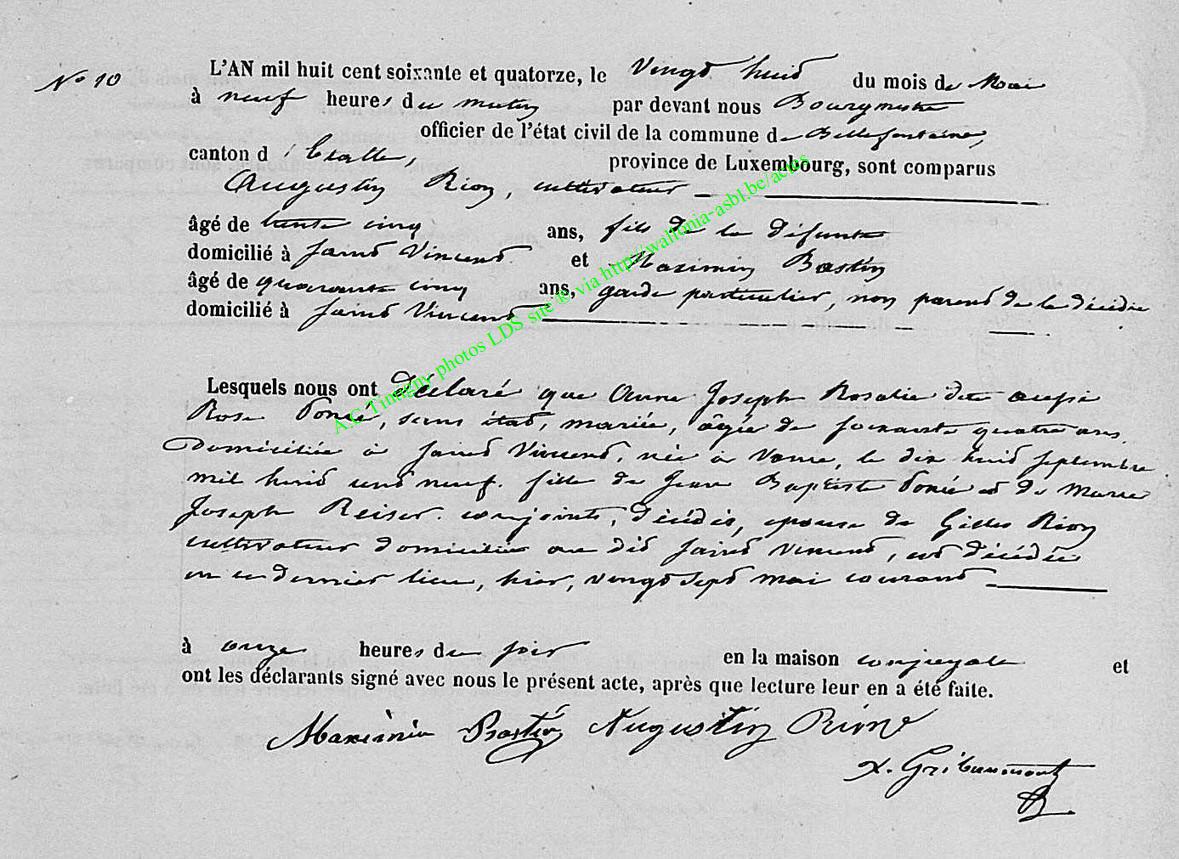 N° 10
L'AN mil huit cent soixante et quatorze, le vingt huit du mois de Mai
à neuf heures du matin par devant nous Bourgmestre
officier de l'état civil de la commune de Bellefontaine,
canton d'Etalle, province de Luxembourg, sont comparus
Augustin Rion, cultivateur
âgé de trente cinq ans, fils de la défunte
domicilié à Saint Vincent et Maximin Bastin
âgé de quarante cinq ans, garde particulier, non parent de la décédée
domicilié à Saint Vincent
Lesquels nous ont déclaré que Anne Joseph Rosalie dite aussi
Rose Poncé, sans état, mariée, âgée de soixante quatre ans
domiciliée à Saint Vincent, née à Vance, le dix huit septembre
mil huit cent neuf. fille de Jean Baptiste Poncé et de Marie
Joseph Reiser. conjoints, décédés, epouse de Gilles Rion
cultivateur domicilié au dit Saint Vincent, est décédée
en ce dernier lieu, hier, vingt sept mai courant
à onze heures du soir en la maison conjugale et
ont les déclarants signé avec nous le présent acte, après que lecture leur en a été faite.
Maximin Bastin Augustin Rion
A.C Tintigny photos LDS sue © via http://wallonia-asbl.be/actes